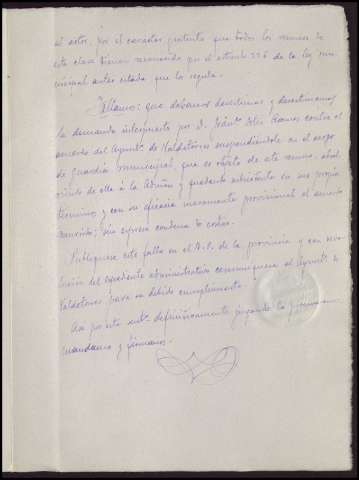 al actor, por el carácter gratuito que todos los recursos de
esta clase tienen reconocido por el artículo 226 de la ley mu-
nicipal antes citada que lo regula.
Fallamos: que debemos desestimar y desestimamos
la demanda interpuesta por D. Solís Ramos contra el
acuerdo del Ayuntº de Valdetorres suspendiéndole en el cargo
de guardia municipal, que es objeto de este recurso, absol-
viendo de ella á la Admón y quedando subsistente en sus propios
términos y con su eficacia meramente provisional el acuerdo
recurrido; sin expresa condena de costas.
Publíquese este fallo en el B.O. de la provincia y con devo-
lución del expediente administrativo comuníquese al Ayuntº de
Valdetorres para su debido cumplimiento.
Así por esta sentª definitivamente juzgando lo pronunciamos
mandamos y firmamos.